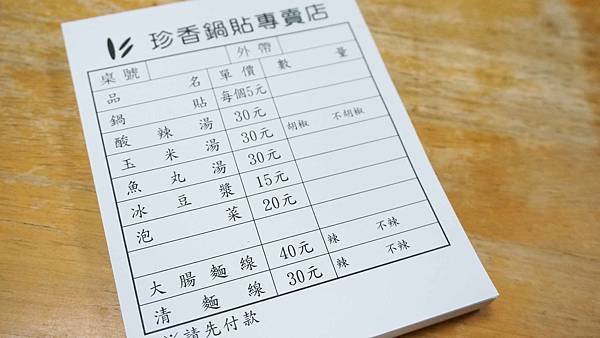 珍香鍋貼專賣店
桌號 外帶
品名 單價 數量
鍋貼 每個5元
酸辣湯 30元
玉米湯 30元 胡椒 不胡椒
魚丸湯 30元
冰豆漿 15元
泡菜 20元
大腸麵線 40元 辣 不辣
清麵線 30元 辣 不辣
※請先付款